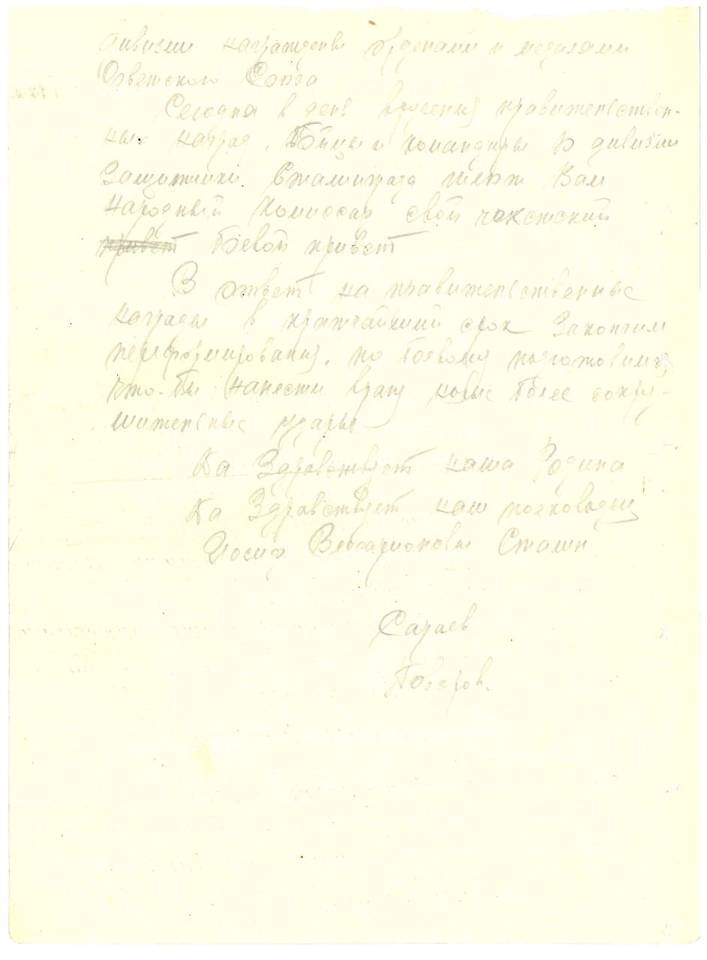 дивизии награждены орденами и медалями
Советского Союза
Сегодня в день вручения правительствен-
ных наград. Бойцы и командиры 10 дивизии
Защитники Сталинграда шлют Вам
народный комиссар свой чекистский
привет боевой привет
В ответ на правительственные
награды в кратчайший срок закончим
переформирования, по боевому подготовимся
что-бы нанести врагу новые более сокру-
шительные удары
Да Здравствует наша Родина
Да Здравствует наш полководец
Иосиф Виссарионович Сталин
Сараев